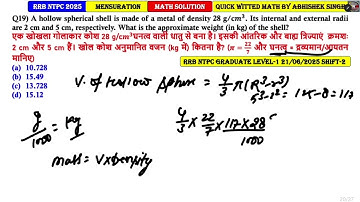 RRB NTPC 2025 MENSURATION MATH SOLUTION QUICK WITTED MATH BY ABHISHEK SINGH
Q19) A hollow spherical shell is made of a metal of density 28 g/cm³. Its internal and external radii
are 2 cm and 5 cm, respectively. What is the approximate weight (in kg) of the shell?
एक खोखला गोलाकार कोश 28 g/cm³घनत्व वाली धातु से बना है। इसकी आंतरिक और बाह्य त्रिज्याएं क्रमशः
2 cm और 5 cm हैं। खोल कोश अनुमानित वजन (kg में) कितना है? (π = 22/7 और घनत्व = द्रव्यमान/आयतन
मानिए)
RRB NTPC GRADUATE LEVEL-1 21/06/2025 SHIFT-2
(a) 10.728
(b) 15.49
(c) 13.728
(d) 15.12
V. of Hollow Sphere = 4/3 π(R³-r³)
5³-2³ = 125-8 = 117
g/1000 = kg
4/3 × 22/7 × 117×28/1000
mass = V×Density